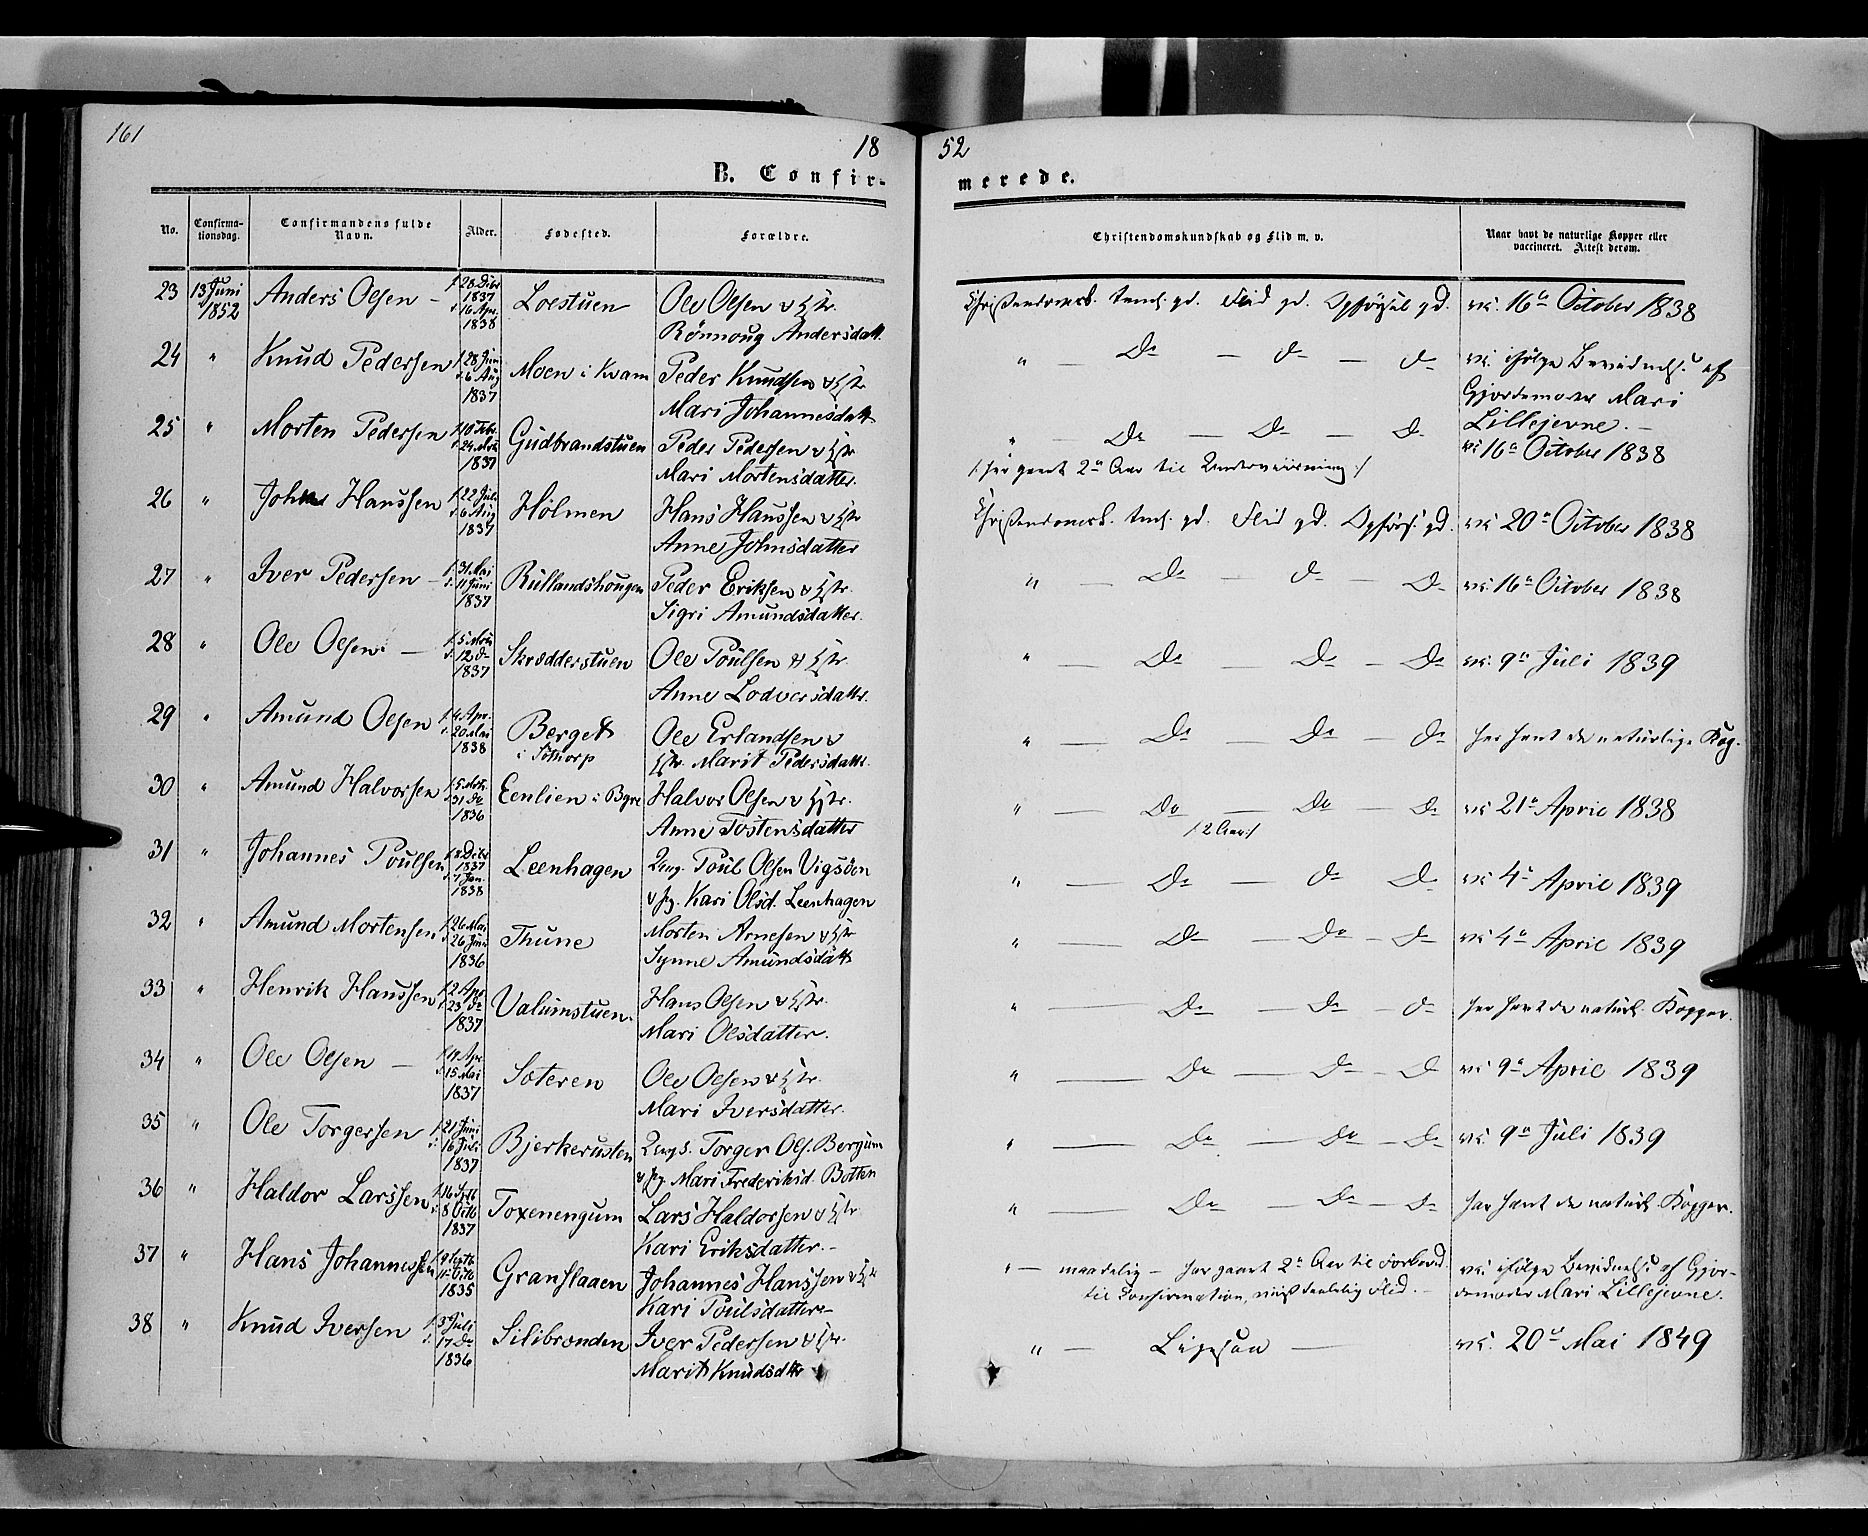 161
18 52
B. Confirmerede.
No. Confirmationsdag. Confirmandens fulde Navn. Alder. Fødested. Forældre. Christendomskundskab og Flid m. v. Naar havt de naturlige Kopper eller vaccineret. Attest derom.
23 13 Juni 1852 Anders Olsen – f. 28 Dcbr 1837 d. 16 Apr. 1838 Loestuen Ole Olsen & Hstr. Rønnoug Andersdatt. Christendomsk. temml. gd. Flid gd. Opførsel gd. vc. 16de October 1838
24 " Knud Pedersen f. 28 Juni d. 6 Aug 1837 Moen i Kvam Peder Knudsen & Hstr Mari Johannesdatt. " — Do — do — do vc. ifølge Bevidnels. af
Gjordemoder Mari
Lillejevne. –
25 " Morten Pedersen f. 10 Febr. d. 24 Marts 1837 Gudbrandstuen Peder Pedersen & Hstr Mari Mortensdatter. " — Do — Do — Do vc 16de October 1838
/: har gaaet 2de Aar til Underviisning :/
26 " John Hanssen f. 22 Juli d. 6 Aug 1837 Holmen Hans Hanssen & Hstr Anne Johnsdatter Christendomsk. teml. gd. Flid gd. Opførs. gd. vc 20de October 1838
27 " Iver Pedersen – f. 31 Mai d. 11 Juni 1837 Rullandshougen Peder Eriksen & Hstr. Sigri Amundsdatter. " — Do — do — Do vc. 16de October 1838
28 " Ole Olsen. — f. 5 Marts d. 12 do 1837 Skrædderstuen Ole Poulsen & Hstr. Anne Lodversdatter. " — Do — Do — Do vc. 9de Juli 1839
29 " Amund Olsen f. 4 Apr. d. 20 Mai 1838 Berget i Sottorp Ole Erlandsen & Hstr. Marit Pedersdattr. " — Do — Do — Do har havt de naturlige Kop.
30 " Amund Halvorsen f. 5 Mrts. d. 31 Do 1836 Eenlien i Byre Halvor Olsen & Hstr. Anne Tostensdatter " — Do — Do — Do vc 21de April 1838
/: 2 Aar :/
31 " Johannes Poulsen f. Dcbr 1837 d. 7 Jan. 1838 Leenhagen Ung. Poul Olsen Vigsøen & Pg. Kari Olsd. Leenhagen " — Do — do — Do vc 4de April 1839
32 " Amund Mortensen f. 26 Mai d. 26 Juni 1836 Thune Morten Arnesen & Hstr Synne Amundsdatt " — Do — Do — Do vc 4de April 1839
33 " Henrik Hanssen f. 2 Apr d. 23 do 1837 Valumstuen. Hans Olsen & Hstr. Mari Olsdatter. " — Do — Do — do har havt de naturl. Kopper.
34 " Ole Olsen — f. 11 Apr. d. 15 Mai 1837 Soteren Ole Olsen & Hstr. Mari Iversdatter. " — Do — Do — D vc 9de April 1839
35 " Ole Torgersen f. 21 Juni d. 16 Juli 1837 Bjerkerusten Ungk. Torger Ols. Bergum & Pg. Mari Frederiksd. Botten " — Do — Do — Do vc. 9de Juli 1839
36 " Haldor Larssen f. 16 Sptb d. 8 Octb 1837 Toxenengum Lars Haldorsen & Hstr. Kari Eriksdatter. – " — Do — Do — do har havt de naturl. Kopper.
37 " Hans Johannessen f. 9 Septb d. 11 Octb 1835 Granslaaen Johannes Hanssen & Hstr Kari Poulsdatter – " — maadelig – har gaaet 2de Aar til Forbered. vc. ifølge Bevidnels. af Gjor-
til Confirmation, med Flid. – demoder Mari Lillejevne.
38 " Knud Iversen f. 3 Juli d. 17 Do 1836 Silibrønden Iver Pedersen & Hstr. Marit Knudsdtr " — Ligesaa — vc. 20de Mai 1849